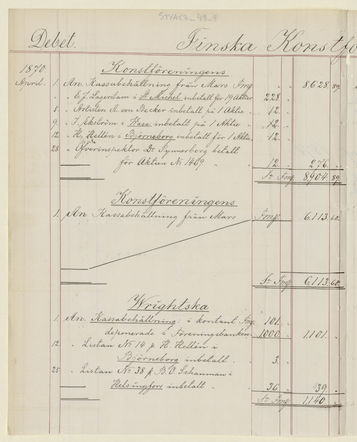 Debet. Finska Konstfö
1870 Konstföreningens
April. 1. An Kassabehållning från Mars Fmg 8,628. 89.
" C. J. Lagerdam i St Michel inbetalt för 19 Aktier 228.
5. " Artisten A. von Becker inbetalt på 1 Aktie 12.
9. " J. Ekström i Wasa inbetalt på 1 Aktie 12.
12. " H. Hellén i Björneborg inbetalt för 1 Aktie 12.
28. " Öfverinspektor Dr betalt
för Aktien № 1469. 12. 276.
Sr Fmg 8904. 89.
Konstföreningens
1. An Kassabehållning från Mars Fmg 6,113. 60.
Sr Fmg 6,113. 60.
Wrightska
1. An Kassabehållning i kontant Fmg 101.
deponerade i Föreningsbanken 1000. 1,101.
12. " Listan № 14 p H. Hellén i
Björneborg inbetalt 3.
25. " Listan № 38 p B. O. Schauman i
Helsingfors inbetalt 36. 39.
Sr Fmg 1140.